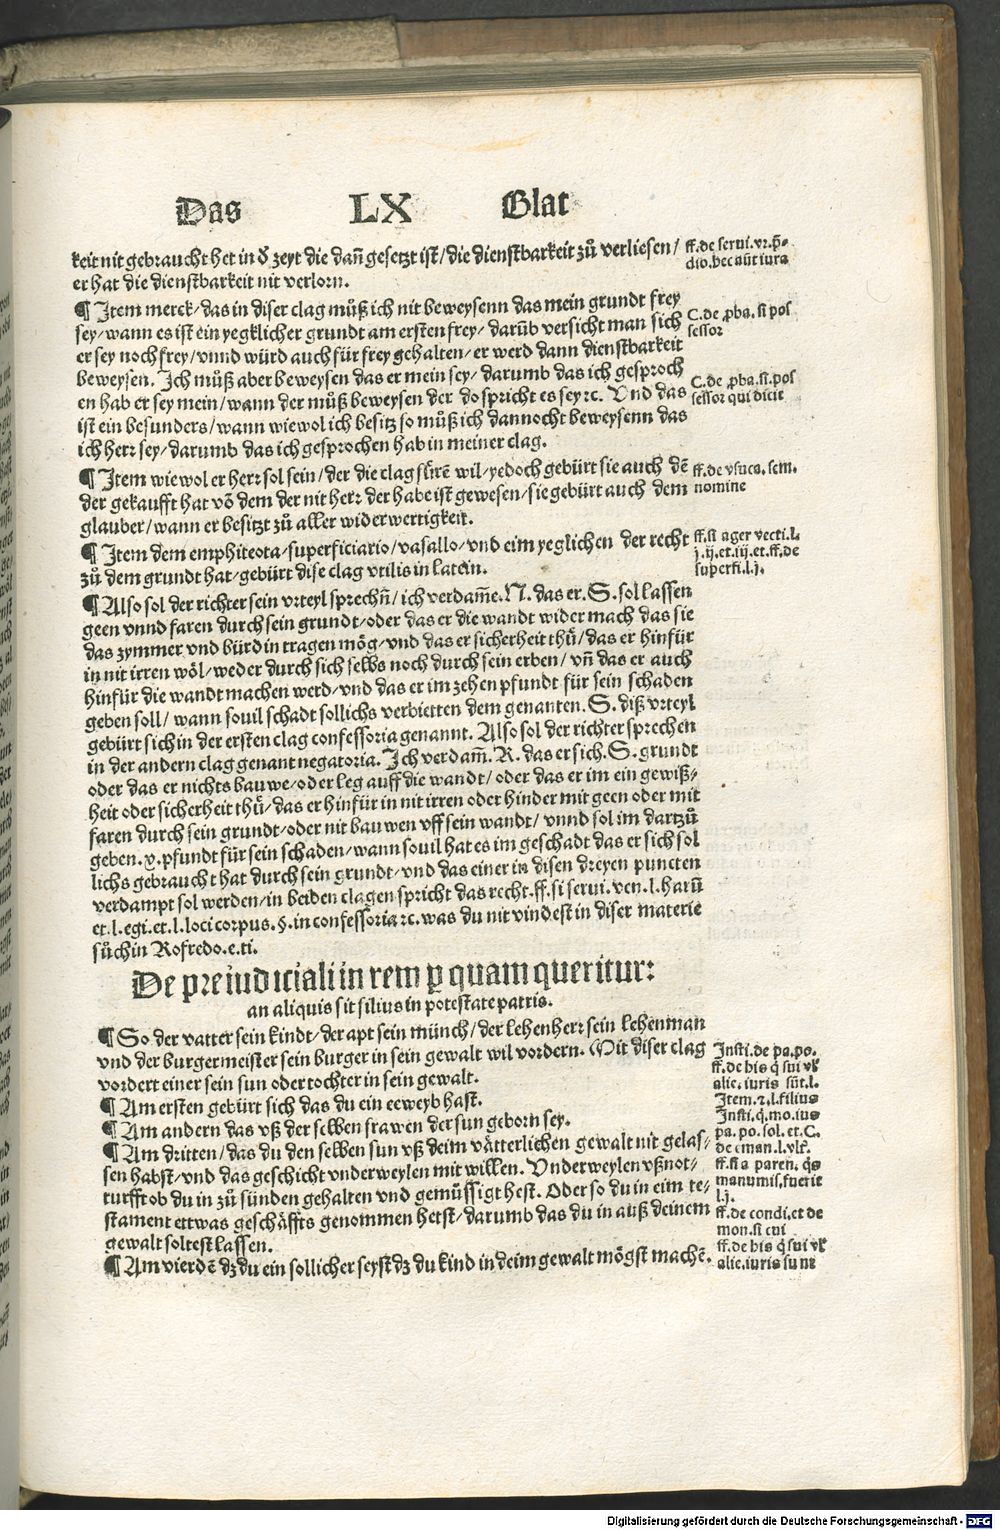 Das LX Blat
keit nit gebraucht het in d̕ zeyt die dañ gesetzt ist/die dienstbarkeit zů verliesen/
er hat die dienstbarkeit nit verlorn.
¶ Item merck/das in diser clag můß ich nit beweysenn das mein grundt frey
sey/wann es ist ein yegklicher grundt am ersten frey/darũb versicht man sich
er sey noch frey/vnnd würd auch für frey gehalten/er werd dann dienstbarkeit
beweysen. Ich můß aber beweysen das er mein sey/darumb das ich gesproch
en hab er sey mein/wann der můß beweysen der do spricht es sey ꝛc. Vnd das
ist ein besunders/wann wiewol ich besitz so můß ich dannocht beweysenn das
ich herr sey/darumb das ich gesprochen hab in meiner clag.
¶ Item wiewol er herr sol sein/der die clag fürẽ wil/yedoch gebürt sie auch dẽ
der gekaufft hat võ dem der nit herr der habe ist gewesen/sie gebürt auch dem
glauber/wann er besitzt zů aller widerwertigkeit.
¶ Item dem emphiteota/superficiario/vasallo/vnd eim yeglichen der recht
zů dem grundt hat/gebürt dise clag vtilis in latein.
¶ Also sol der richter sein vrteyl sprechñ/ich verdam̃e. N. das er. S. sol lassen
geen vnnd faren durch sein grundt/oder das er die wandt wider mach das sie
das zymmer vnd bürd in tragen mög/vnd das er sicherheit thů/das er hinfür
in nit irren wöl/weder durch sich selbs noch durch sein erben/vñ das er auch
hinfür die wandt machen werd/vnd das er im zehen pfundt für sein schaden
geben soll/wann souil schadt sollichs verbietten dem genanten. S. diß vrteyl
gebürt sich in der ersten clag confessoria genannt. Also sol der richter sprechen
in der andern clag genant negatoria. Ich verdam̃. R. das er sich. S. grundt
oder das er nichts bauwe/oder leg auff die wandt/oder das er im ein gewiß/
heit oder sicherheit thů/das er hinfür in nit irren oder hinder mit geen oder mit
faren durch sein grundt/oder nit bauwen vff sein wandt/vnnd sol im dartzů
geben. x. pfundt für sein schaden/wann souil hat es im geschadt das er sich sol
lichs gebraucht hat durch sein grundt/vnd das einer in disen dreyen puncten
verdampt sol werden/in beiden clagen spricht das recht. ff. si serui. ven. l. harũ
et. l. egi. et. l. loci corpus. §. in confessoria ꝛc. was du nit vindest in diser materie
sůch in Rofredo. e. ti.
De preiudiciali in rem ꝑ quam queritur:
an aliquis sit filius in potestate patris.
¶ So der vatter sein kindt/der apt sein münch/der lehenherr sein lehenman
vnd der burgermeister sein burger in sein gewalt wil vordern. Mit diser clag
vordert einer sein sun oder tochter in sein gewalt.
¶ Am ersten gebürt sich das du ein eeweyb hast.
¶ Am andern das vß der selben frawen der sun geborn sey.
¶ Am dritten/das du den selben sun vß deim vätterlichen gewalt nit gelas/
sen habst/vnd das geschicht vnderweylen mit willen. Vnderweylen vß not/
turfft ob du in zů sünden gehalten vnd gemůssigt hest. Oder so du in eim te/
stament ettwas geschäffts genommen hetst/darumb das du in auß deinem
gewalt soltest lassen.
¶ Am vierdẽ dz du ein sollicher seyst dz du kind in deim gewalt mögst machẽ.
ff. de serui. vr. p̃-
dio. hec aũt iura
C. de ꝓba. si pos
sessor
C. de ꝓba. si. pos
sessor qui dicit
ff. de vsuca. sem.
nomine
ff. si ager vecti. l.
j. ij. et. iij. et. ff. de
superfi. l. j.
Insti. de pa. po.
ff. de his q̇ sui vł
alie. iuris sũt. l.
Item. ⁊. l. filius
Insti. q̇. mo. ius
pa. po. sol. et. C.
de eman. l. vlt̃.
ff. si a paren. q̇s
manumis. fuerit
l. j.
ff. de condi. et de
mon. si cui
ff. de his q̇ sui vł
alie. iuris sunt
Digitalisierung gefördert durch die Deutsche Forschungsgemeinschaft - DFG